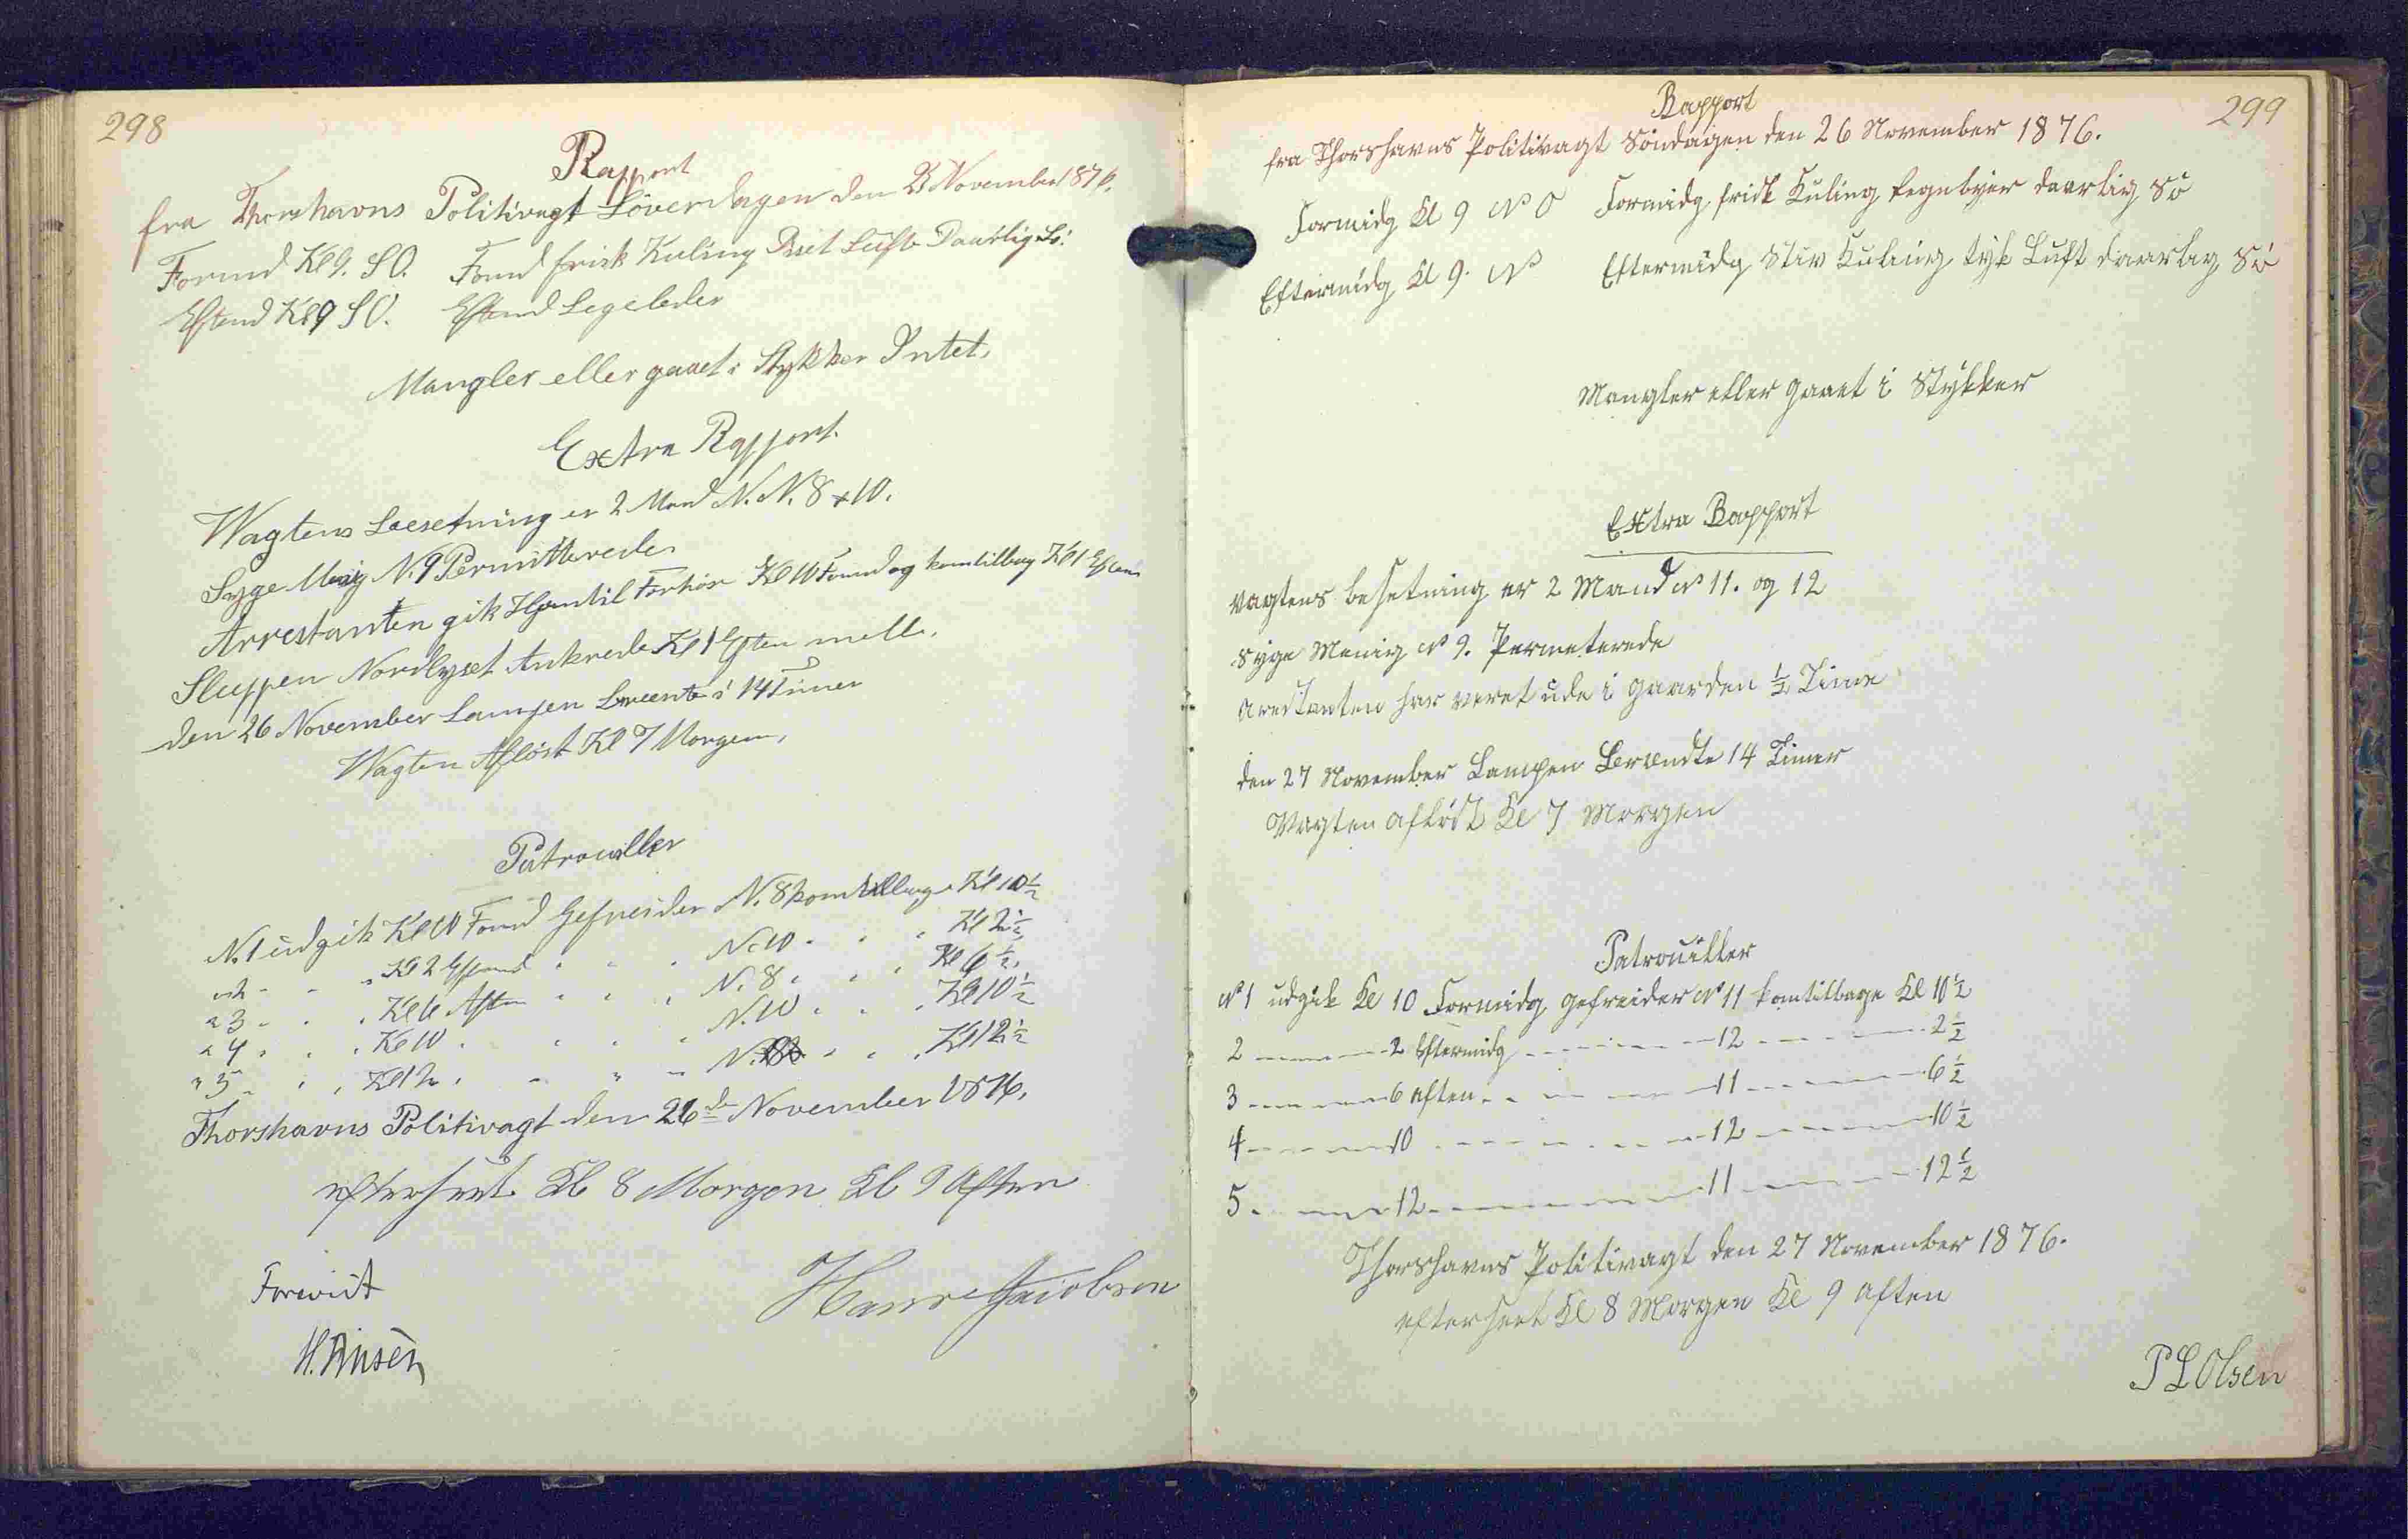 298
Rapport
fra Thorshavns Politivagt Löverdagen den 25 November 1876.
Formd Kl 9. SO. Formd frisk Kuling Diset Luft Daarlig Sö.
Eftmd Kl 9 SO. Eftmd Ligeledes
Mangler eller gaaet i Stykker Intet.
Extra Rapport.
Wagtens Besetning er 2 Mand N. N. 8 & 10.
Syge Menig N. 9 Permitterede.
Arrestanten gik Hjem til Forhör Kl 10 Formd og kom tilbag Kl 1 Eftem
Sluppen Nordlyset Ankrede Kl 1 Eften
den 26 November Lampen Brænte i 14 Timer
Wagten Aflöst Kl 7 Morgen.
Patrouiller
N. 1 udgik Kl 10 Formd Gefreider N. 8 kom tilbage Kl 10 1/2
" 2 - - " Kl 2 Eftmd " " " N. 10 " " " Kl 2 1/2
" 3 - - " Kl 6 Aften " " " N. 8 " " " Kl 6 1/2
" 4 " " " Kl 10 " " " " N. 10 " " " Kl 10 1/2
" 5 " " " Kl 12 " " " " N. 8 " " " Kl 12 1/2
Thorshavns Politivagt den 26de November 1876.
efterseet Kl 8 Morgen Kl 9 Aften
Forevist
Hans Jacobsen
299
Rapport
fra Thorshavns Politivagt Söndagen den 26 November 1876.
Formidg Kl 9 N O Formidg frisk Kuling Regnbyer daarlig Sö
Eftermidg Kl 9. N Eftermidg Stiv Kuling tyk Luft daarlig Sö
Mangler eller gaaet i Stykker
Extra Rapport
Vagtens besetning er 2 Mand No 11. og 12
Syge Menig No 9. Permeterede
Arestanten har veret ude i Gaarden 1/2 Time
den 27 November Lampen Brændte 14 Timer
Vagten aflöst Kl 7 Morgen
Patrouiller
No 1 udgik Kl 10 Formidg Gefreider No 11 kom tilbage Kl 10 1/2
2 - - - 2 Eftermidg - - - 12 - - - 2 1/2
3 - - - 6 Aften - - - 11 - - - 6 1/2
4 - - - 10 - - - 12 - - - 10 1/2
5 - - - 12 - - - 11 - - - 12 1/2
Thorshavns Politivagt den 27 November 1876.
efterseet Kl 8 Morgen Kl 9 Aften
P L Olsen